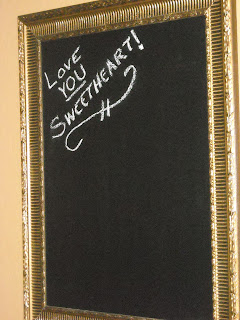 LOVE
YOU
SWEETHEART!